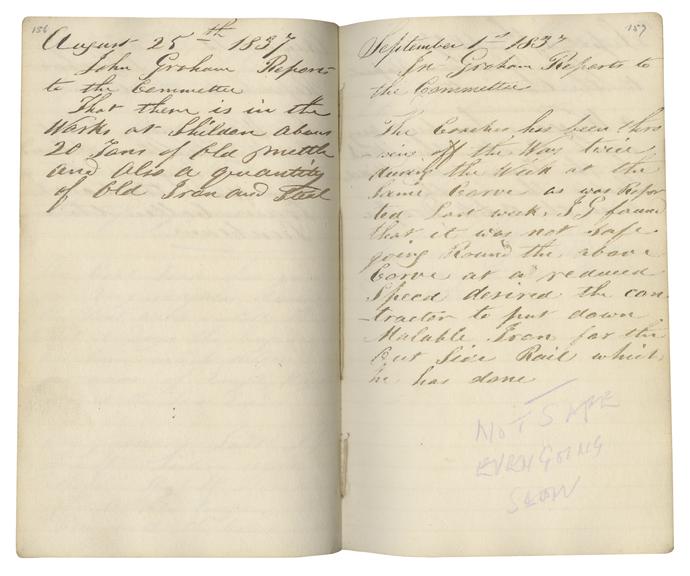 156
August 25th 1837
John Graham Reports
to the Committee
That there is in the
Works at Shildon about
20 Tons of Old Mettle
and also a quantity
of Old Iron and Steel
157
September 1st 1837
Jno Graham Reports to
the Committee
The Coaches has been thro
wing off the Way twice
during the Week at the
same Corve as was Repor
ted Last week. J G found
that it was not safe
going Round the above
Corve at a reduced
Speed desired the con
-tractor to put down
Malable Iron for the
Out Side Rail which
he has done
NOT SAFE
EVEN GOING
SLOW